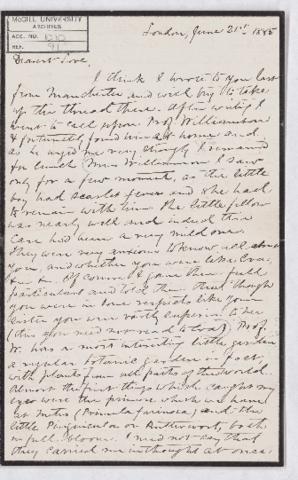 McGILL UNIVERSITY
ARCHIVES
ACC. NO.
REF. 91
London, June 21st 1885
Dearest Love,
I think I wrote to you last
from Manchester and will try to take
up the thread there. After writing I
went to call upon Prof Williamson
& fortunately found him at home and
as he urged me very strongly I remained
for lunch. Mrs Williamson I saw
only for a few moments, as the little
boy had scarlet fever and she had
to remain with him. The little fellow
was nearly well and indeed this
case had been a very mild one.
They were very anxious to know all about
you, and whether you were like
&c &c. Of course I gave them full
particulars and told them that though
you were in some respects like your
sister you were vastly superior to her
(this you need not read to ). Prof.
W. has a most interesting little garden
a regular botanic garden in fact,
with plants from all parts of the world.
Almost the first things which caught my
eyes were the primrose which we have
at Metis (Primula farinosa) and the
little Pinguicula or Butterwort, both
in full bloom. I need not say that
they carried me in thought at once